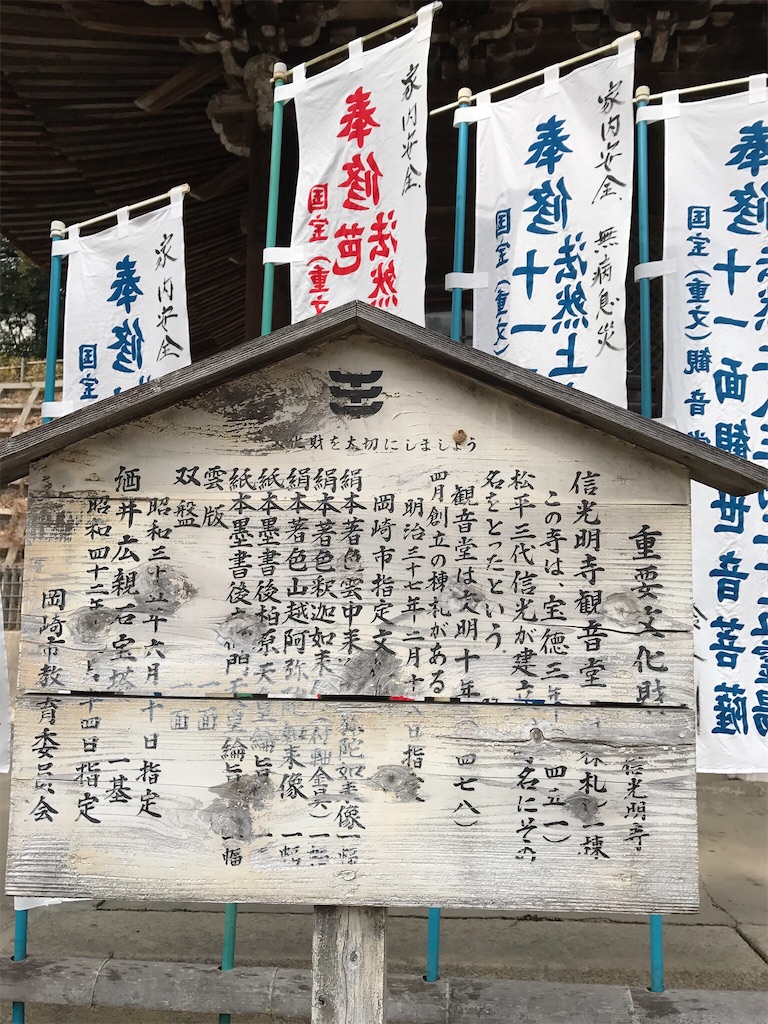 家内安全
奉修
国宝
家内安全
奉修芭
法然
国宝(重文
家内安全 無病息災
奉修十一
法然上
国宝(重文)
奉修十一面観世音菩薩
国宝(重文)観音
霊場
化財を大切にしましょう
重要文化財
信光明寺
信光明寺観音堂
札一棟
この寺は、宝徳三年
四五一)
松平三代信光が建立
名にその
名をとったという。
観音堂は文明十年
四七八)
四月創立の棟札がある
明治三十七年二月十八日指定
岡崎市指定文
絹本著色雲中来
弥陀如来像一幅
絹本著色釈迦如来
(付軸金具)一幅
絹本著色山越阿弥陀如来像 一幅
紙本墨書後柏原天皇綸旨 一
紙本墨書後
門天皇綸旨 一幅
雲版
一面
双盤
面
昭和三十五年六月
十日指定
酒井広親石宝塔 一基
昭和四十二年
十四日指定
岡崎市教育委員会